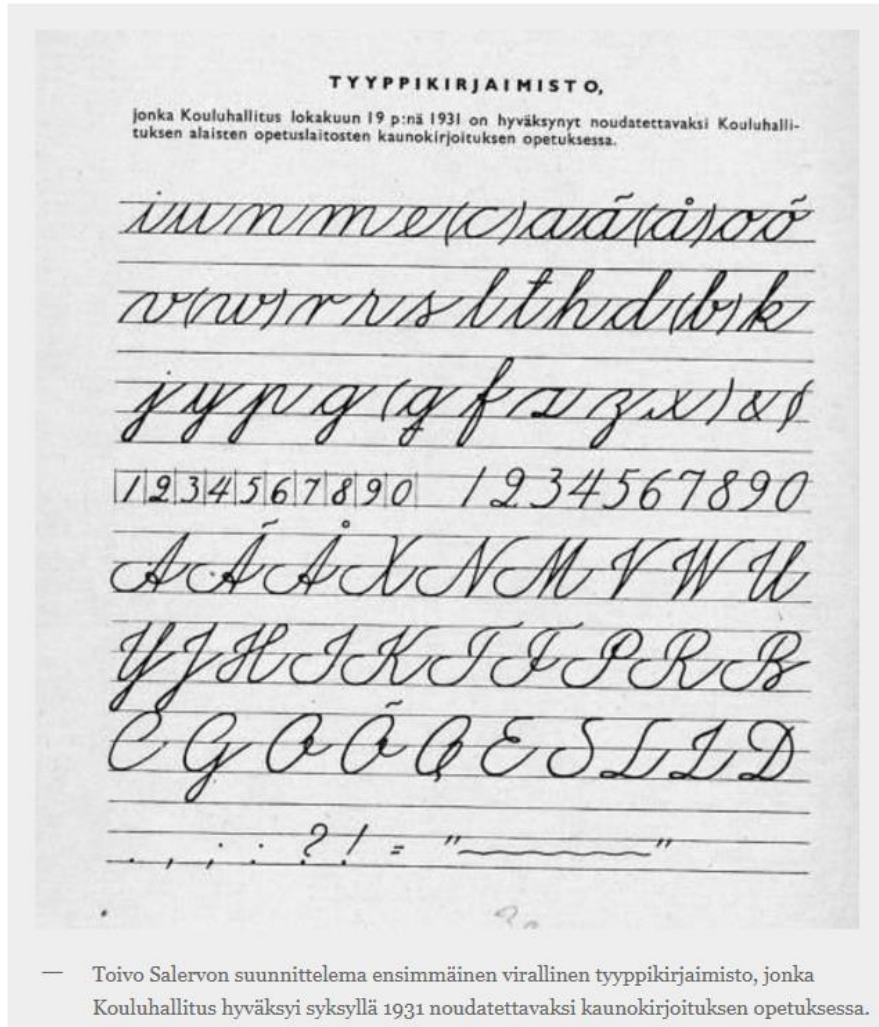 TYYPPIKIRJAIMISTO,
jonka Kouluhallitus lokakuun 19 p:nä 1931 on hyväksynyt noudatettavaksi Kouluhalli-
tuksen alaisten opetuslaitosten kaunokirjoituksen opetuksessa.
i u n m e (c) a ä (å) o ö
v (w) r r s l t h d (b) k
j y p g (q f x z x) &
1 2 3 4 5 6 7 8 9 0 1 2 3 4 5 6 7 8 9 0
A Ä Å X N M V W U
Y J H I K T F P R B
C G O Ö Q E S L Z D
. , ; : ? ! = " "
— Toivo Salervon suunnittelema ensimmäinen virallinen tyyppikirjaimisto, jonka
Kouluhallitus hyväksyi syksyllä 1931 noudatettavaksi kaunokirjoituksen opetuksessa.